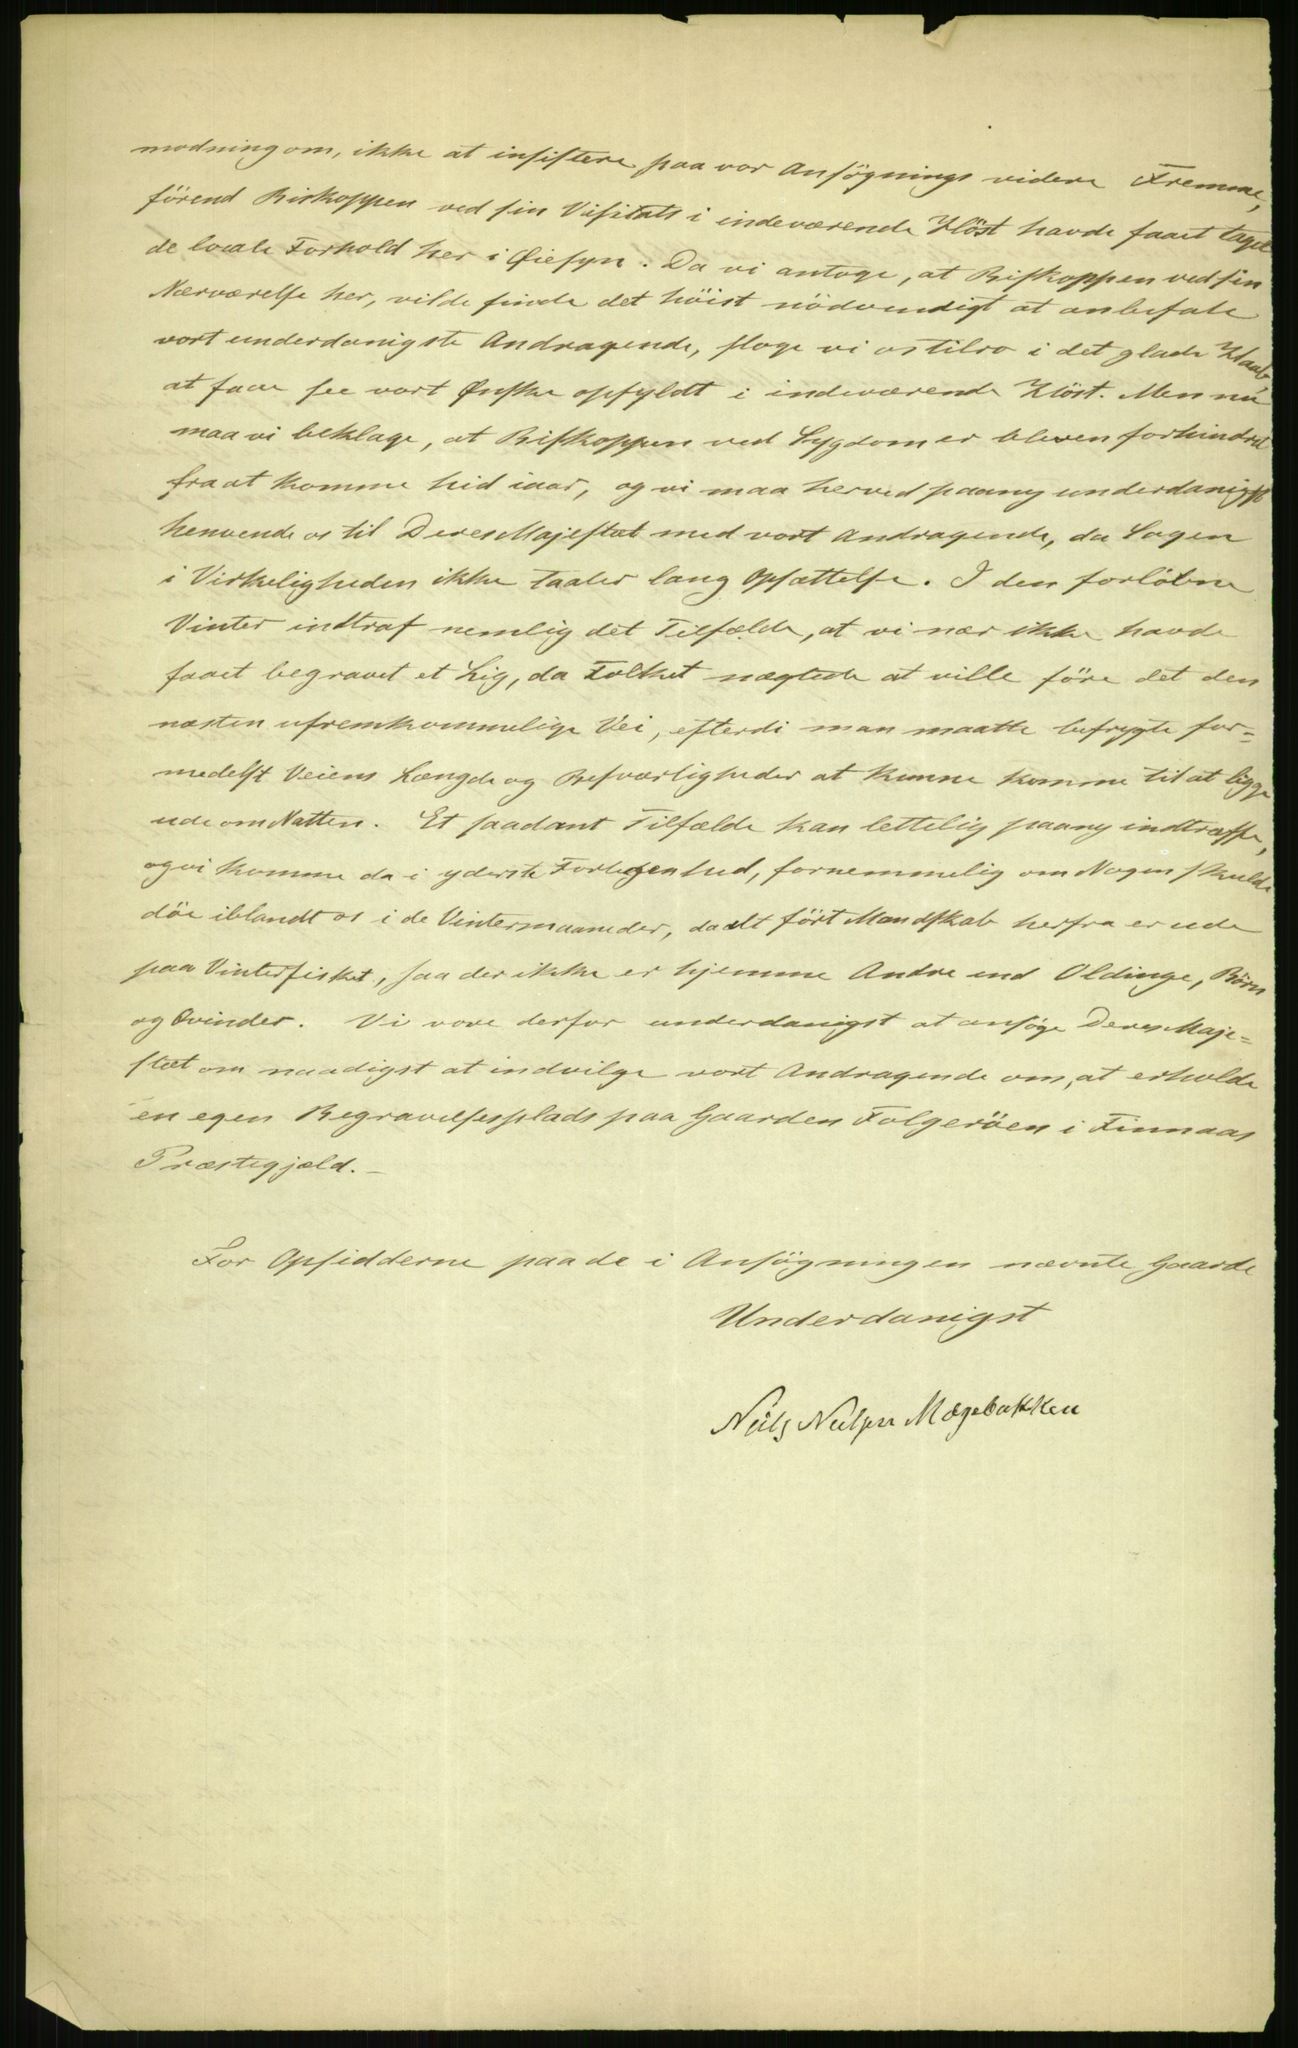 modning om, ikke at insistere paa vor Ansøgnings videre Fremme,
förend Biskoppen ved sin Visitats i indeværende Höst havde faaet taget
de locale Forhold her i Øiesyn. Da vi antoge, at Biskoppen ved sin
Nærværelse her, vilde finde det höist nödvendigt at anbefale
vort underdanigste Andragende, sloge vi os tilro i det glade Haab
at faae see vort Ønske opfyldt i indeværende Höst. Men nu
maa vi beklage, at Biskoppen ved Sygdom er bleven forhindret
fra at komme hid iaar, og vi maa herved paany underdanigst
henvende os til Deres Majestæt med vort Andragende, da Sagen
i Virkeligheden ikke taaler lang Opsættelse. I den forløbne
Vinter indtraf nemlig det Tilfælde, at vi nær ikke havde
faaet begravet et Lig, da Folket nægtede at ville före det den
næsten ufremkommelige Vei, efterdi man maatte befrygte for=
medelst Veiens Længde og Besværligheder at kunne komme til at ligge
ude om Natten. Et saadant Tilfælde kan lettelig paany indtræffe,
og vi komme da i yderste Forlegenhed, fornemmelig om Nogen skulde
döe iblandt os i de Vintermaaneder, da alt fört Mandskab herfra er ude
paa Vinterfisket, saa der ikke er hjemme Andre end Oldinge, Börn
og Qvinder. Vi vove derfor underdanigst at ansöge Deres Maje=
stæt om naadigst at indvilge vort Andragende om, at erholde
en egen Begravelsesplads paa Gaarden Folgeröen i Finnaas
Præstegjæld. -
For Opsidderne paa de i Ansögningen nævnte Gaarde
Underdanigst
Nils Nilsen Mæge bakken